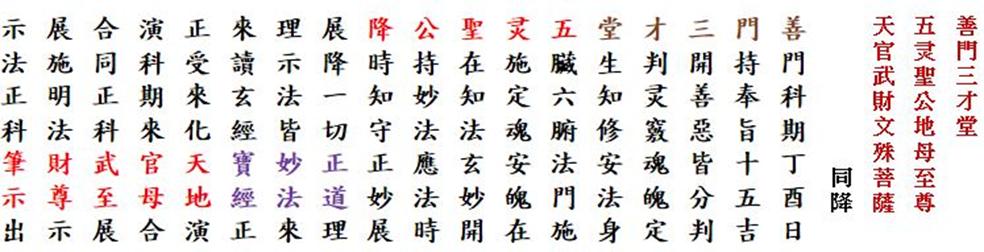 善門三才堂
五灵聖公地母至尊
天官武財文殊菩薩
同降
善門科期丁酉日
門持奉旨十五吉
三開善惡皆分判
才判灵竅魂魄定
堂生知修安法身
五臟六腑法門施
灵施定魂安魄在
聖在知法玄妙開
公持妙法應法時
降時知守正妙展
展降一切正道理
理示法皆妙法來
來讀玄經寶經正
正受來化天地演
演科期來官母合
合同正科武至展
展施明法財尊示
示法正科筆示出